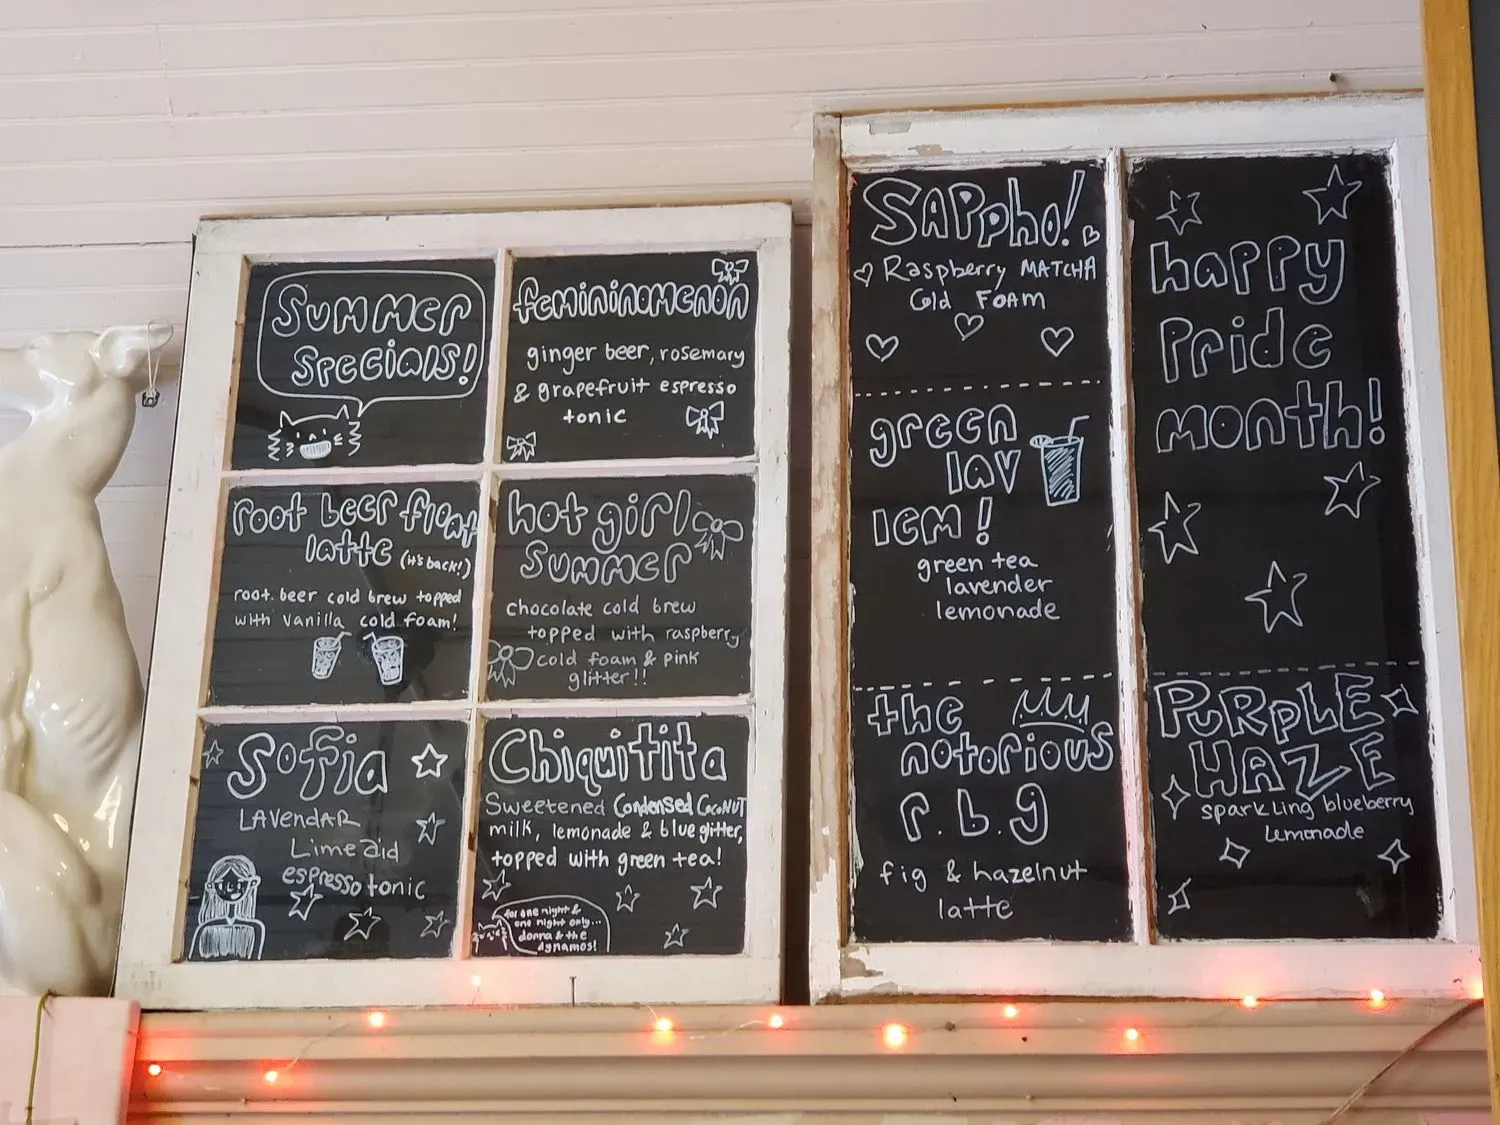 Summer
Specials!
femininomenon
ginger beer, rosemary
& grapefruit espresso
tonic
root beer float
latte (it's back!)
root beer cold brew topped
with vanilla cold foam!
hot girl
summer
chocolate cold brew
topped with raspberry
cold foam & pink
glitter!!
Sofia
LAVendAR
Limeaid
espresso tonic
Chiquitita
Sweetened Condensed CocoNUT
milk, lemonade & blue glitter,
topped with green tea!
for one night &
one night only...
donna & the
dynamos!
SAPpho!
Raspberry MATCHA
Cold FOAM
green
lav
lem!
green tea
lavender
lemonade
the
notorious
r.b.g
fig & hazelnut
latte
happy
Pride
month!
PURpLE
HAZE
sparkling blueberry
Lemonade